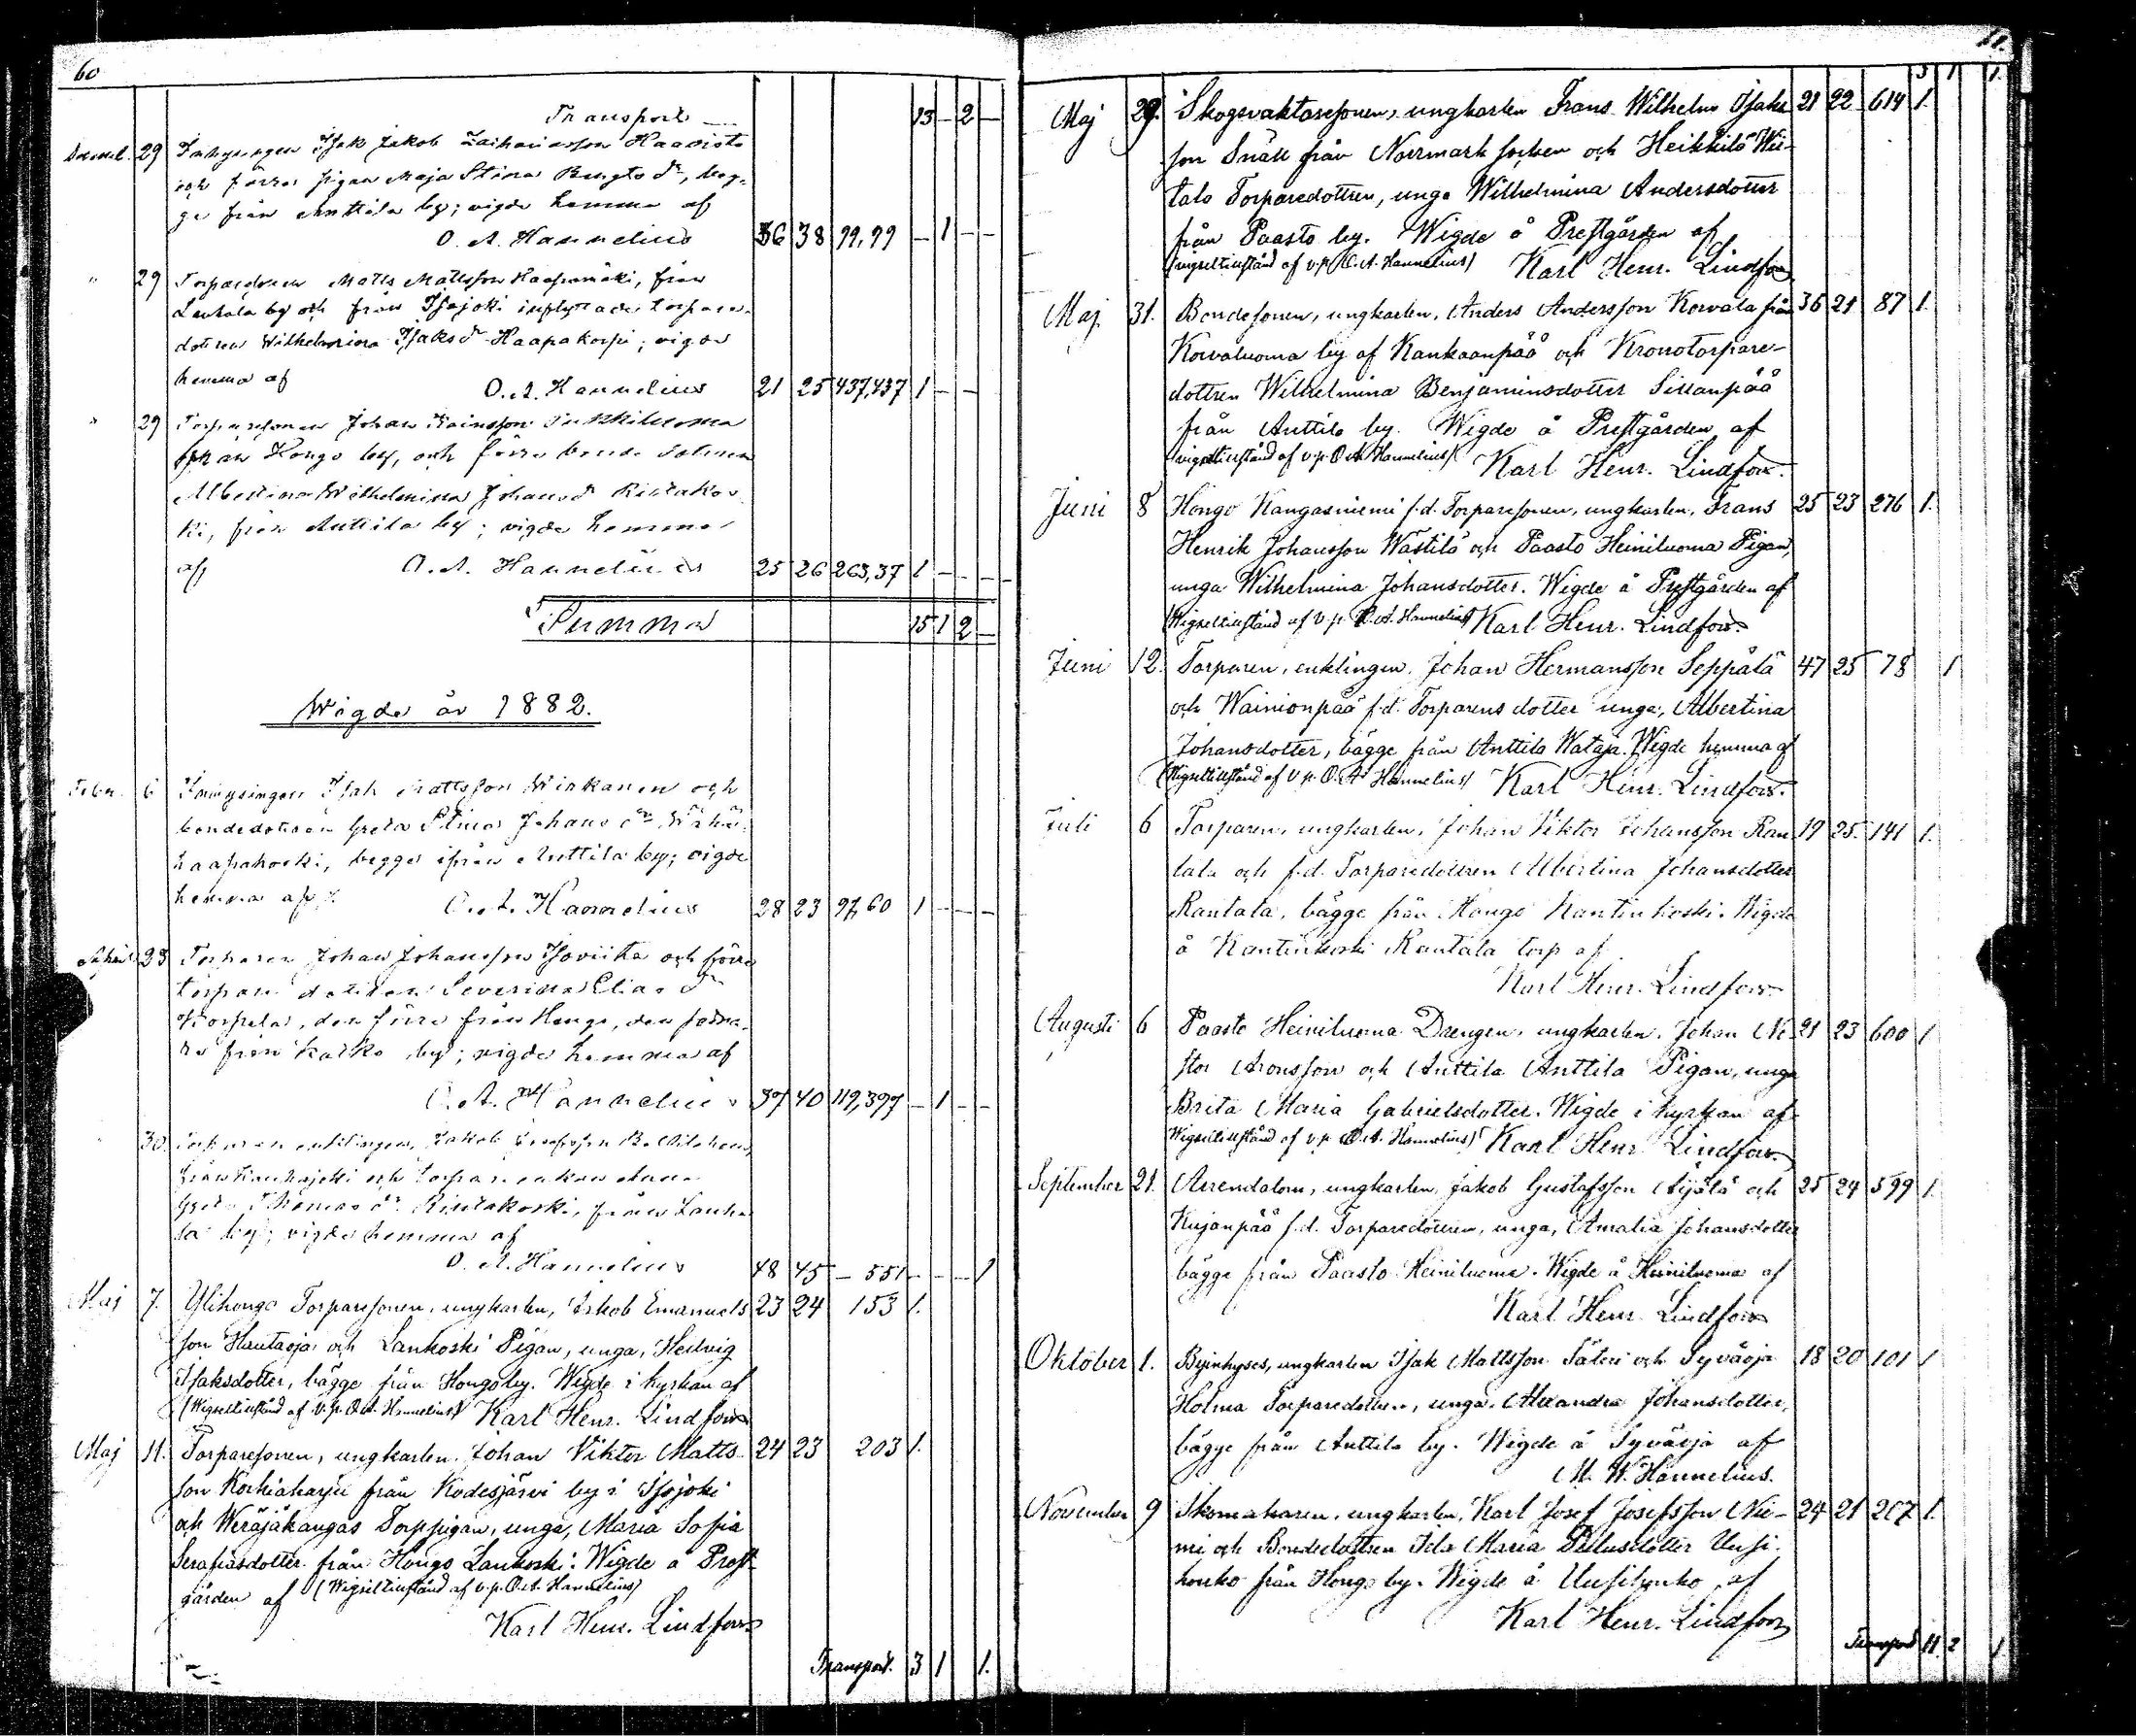 60
Transport 13 - 2 -
29 Inhysingen Isak Jakob Zachariasson Haavisto
och förra pigan Maja Stina Bengtsdr, beg-
ge från Anttila by; vigde hemma af
O. A. Hannelius 36 38 99,99 - 1 - -
" 29 Torparsonen Matts Mattsson Haapamäki, från
Lankala by och från Isojoki inflyttade torpare-
dottren Wilhelmina Isaksdr Haapakoski; vigde
hemma af O. A. Hannelius 21 25 437,437 1 - -
" 29 Torparesonen Johan
från Hongo by, och förra bonde dottren
Albertina Wilhelmina Johansdr Rintakos-
ki, från Anttila by; vigde hemma
af O. A. Hannelius 25 26 263,37 1 - - -
Summa 15 1 2 -
Wigde år 1882.
Febr. 6 Inhysingen Isak Mattsson Wirkanen och
bondedottren Greta Stina Johansdr Wähä-
haapakoski, begge ifrån Anttila by; vigde
hemma af O. A. Hannelius 28 23 97,60 1 - - -
April 23 Torparen Johan Johansson Isoviita och förra
torpare dottren Severina Eliasdr
Korpela, den förre från Hongo, den sedna-
re från Karko by; vigde hemma af
O. A. Hannelius 37 40 119,397 - 1 - -
30. Torparen enklingen Jakob
från Kauhajoki och torpare enkan Anna
Greta Thomasdr Rintakoski, från Lauha-
la by; vigde hemma af
O. A. Hannelius 48 45 - 551 - - - 1
Maj 7. Ylihongo Torparesonen, ungkarlen, Jakob Emanuels- 23 24 153 1.
son Hautaoja och Lankoski Pigan, unga, Hedvig
Isaksdotter, bägge från Hongo by. Wigde i kyrkan af
(Wigseltillstånd af v.p. O.A. Hannelius) Karl Henr. Lindfors
Maj 11. Torparesonen, ungkarlen, Johan Viktor Matts- 24 23 203 1.
son Korhiaharju från Kodesjärvi by i Isojoki
och Weräjäkangas Torppigan, unga, Maria Sofia
Serafiasdotter från Hongo Lankoski. Wigde å Prest-
gården af (Wigseltillstånd af v.p. O.A. Hannelius)
Karl Henr. Lindfors
Transport. 3 1 1.
3 1 1.
Maj 29. Skogsvaktaresonen, ungkarlen Frans Wilhelm Isaks- 21 22 614 1.
son Snäll från Norrmark socken och Heikkilä Wii-
tala Torparedottren, unga Wilhelmina Andersdotter
från Paasto by. Wigde å Prestgården af
(vigseltillstånd af v.p. O.A. Hannelius) Karl Henr. Lindfors
Maj 31. Bondesonen, ungkarlen, Anders Andersson Korvala från 36 21 87 1.
Korvaluoma by af Kankaanpää och Kronotorpare-
dottren Wilhelmina Benjaminsdotter Sillanpää
från Anttila by. Wigde å Prestgården af
(vigseltillstånd af v.p. O.A. Hannelius) Karl Henr. Lindfors.
Juni 8 Hongo Kangasniemi f.d. Torparesonen, ungkarlen, Frans 25 23 276 1.
Henrik Johansson Wästilä och Paasto Heiniluoma Pigan,
unga Wilhelmina Johansdotter. Wigde å Prestgården af
(Wigseltillstånd af v.p. O.A. Hannelius) Karl Henr. Lindfors.
Juni 12. Torparen, enklingen, Johan Hermansson Seppälä 47 25 78 1
och Wainionpää f.d. Torparens dotter unga, Albertina
Johansdotter, bägge från Anttila Wataja. Wigde hemma af
(Wigseltillstånd af v.p. O.A. Hannelius) Karl Henr. Lindfors.
Juli 6 Torparen, ungkarlen, Johan Viktor Johansson Ran- 19 25. 141 1.
tala och f.d. Torparedottren Albertina Johansdotter
Rantala, bägge från Hongo Kantinkoski. Wigde
å Kantinkoski Rantala torp af
Karl Henr. Lindfors
Augusti 6 Paasto Heiniluoma Drengen, ungkarlen, Johan Ne- 21 23 600 1
stor Aronsson och Anttila Anttila Pigan, unga
Brita Maria Gabrielsdotter. Wigde i kyrkan af
Wigseltillstånd af v.p. O.A. Hannelius) Karl Henr. Lindfors.
September 21. Arrendatorn, ungkarlen, Jakob Gustafsson Äijälä och 25 24 599 1.
Kujanpää f.d. Torparedottren, unga, Amalia Johansdotter
bägge från Paasto Heiniluoma. Wigde å Heiniluoma af
Karl Henr. Lindfors
Oktober 1. Byinhyses, ungkarlen Isak Mattsson Säteri och Syväoja 18 20 101 1
Holma Torparedottren, unga, Alexandra Johansdotter,
bägge från Anttila by. Wigde å Syväoja af
M. W. Hannelius.
November 9 Skomakaren, ungkarlen, Karl Josef Josefsson Nie- 24 21 267 1.
mi och Bondedottren Ida Maria Dillusdotter Uusi-
honko från Hongo by. Wigde å Uusihonko af
Karl Henr. Lindfors
Transport 11 2 1